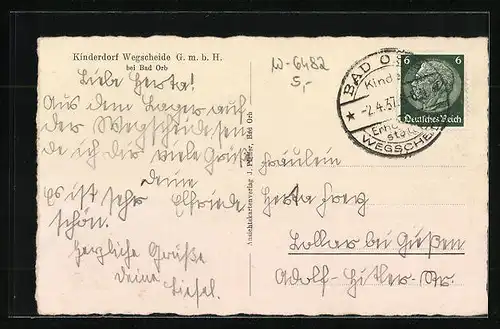 Kinderdorf Wegscheide G. m. b. H.
bei Bad Orb
W-6482
5,-
Liebe Herta!
Aus dem Lager auf
der Wegscheide sen
de ich dir viele Grüße
deine
Elfriede
Es ist sehr
schön.
Herzliche Grüße
deine Liesel.
Ansichtskartenverlag J. Bad Orb
BAD O
Kind
-2.4.37
Erho
WEGSCHEI
6 6
Deutsches Reich
Fräulein
Herta
Lollar bei Gießen
Adolf-Hitler-Str.